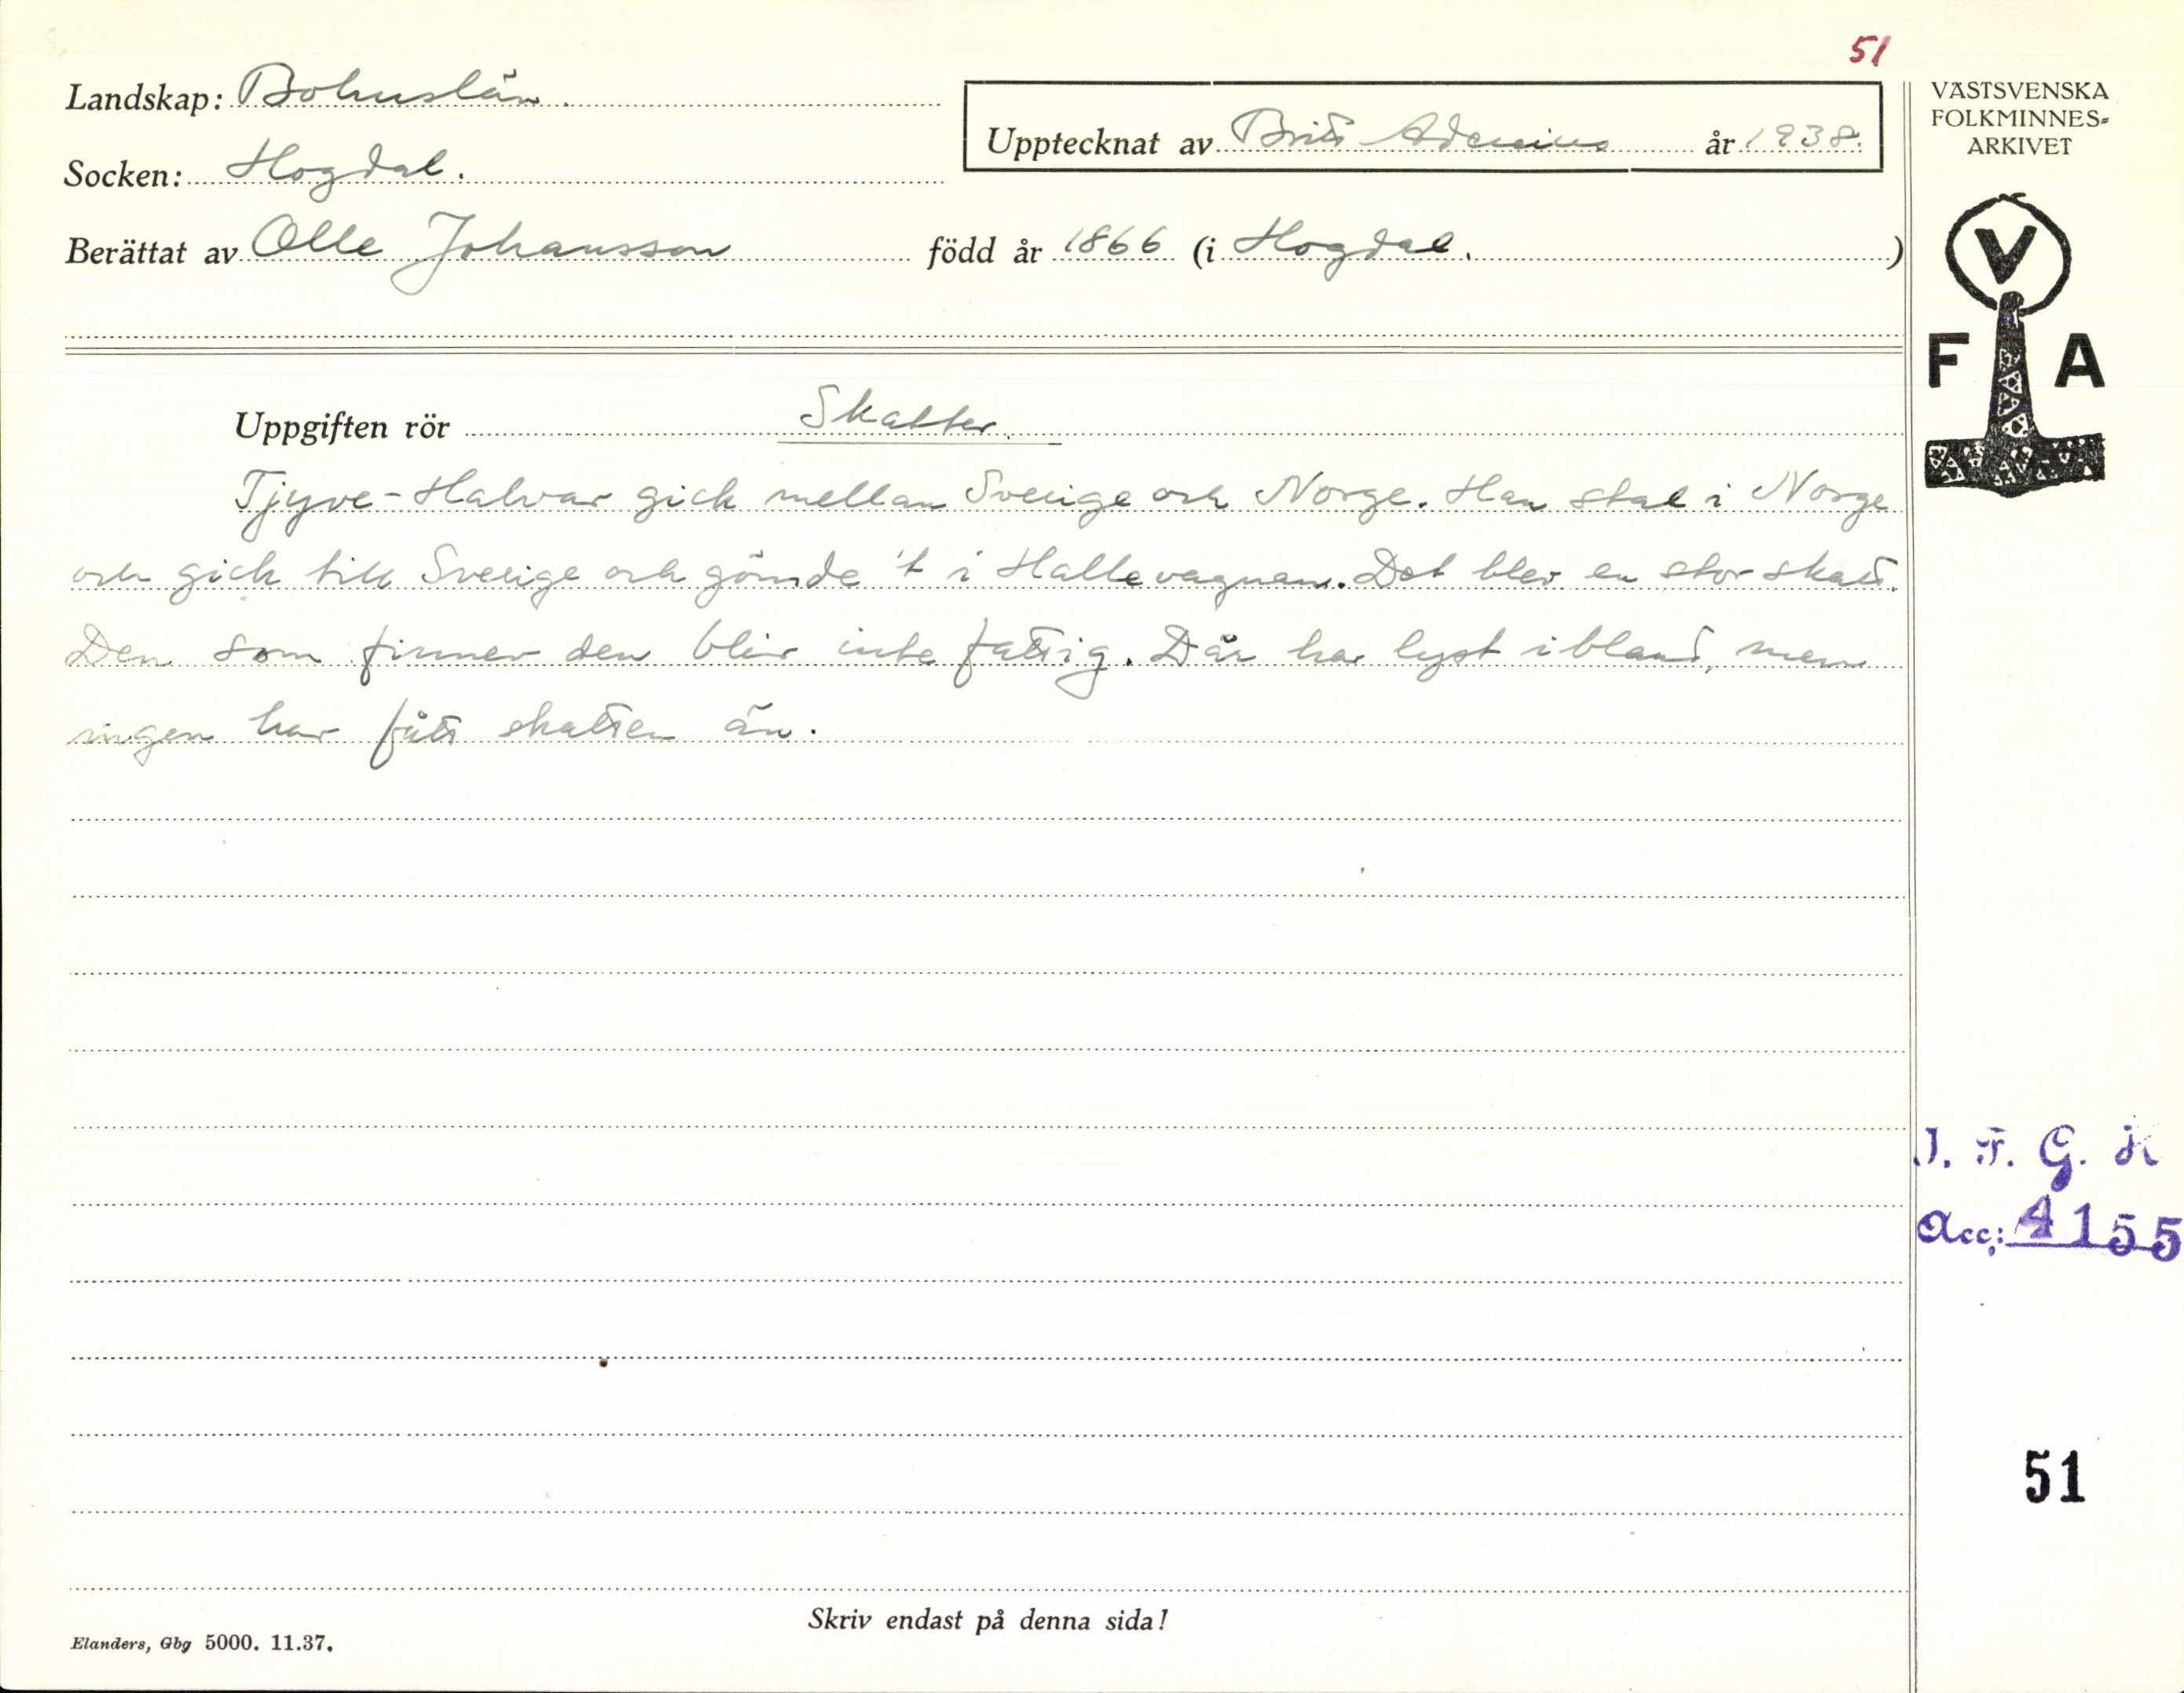 51
Landskap: Bohuslän.
Upptecknat av Britt Adenius år 1938.
Socken: Hogdal.
Berättat av Olle Johansson född år 1866 (i Hogdal. )
VÄSTSVENSKA
FOLKMINNES-
ARKIVET
V
F A
Uppgiften rör Skatter.
Tjyve-Halvar gick mellan Sverige och Norge. Han stal i Norge
och gick till Sverige och gömde 't i Hallevagnen. Det blev en stor skatt.
Den som finner den blir inte fattig. Där har lyst ibland, men
ingen har fått skatten än.
I. F. G. H
Acc: 4155
51
Skriv endast på denna sida!
Elanders, Gbg 5000. 11.37.